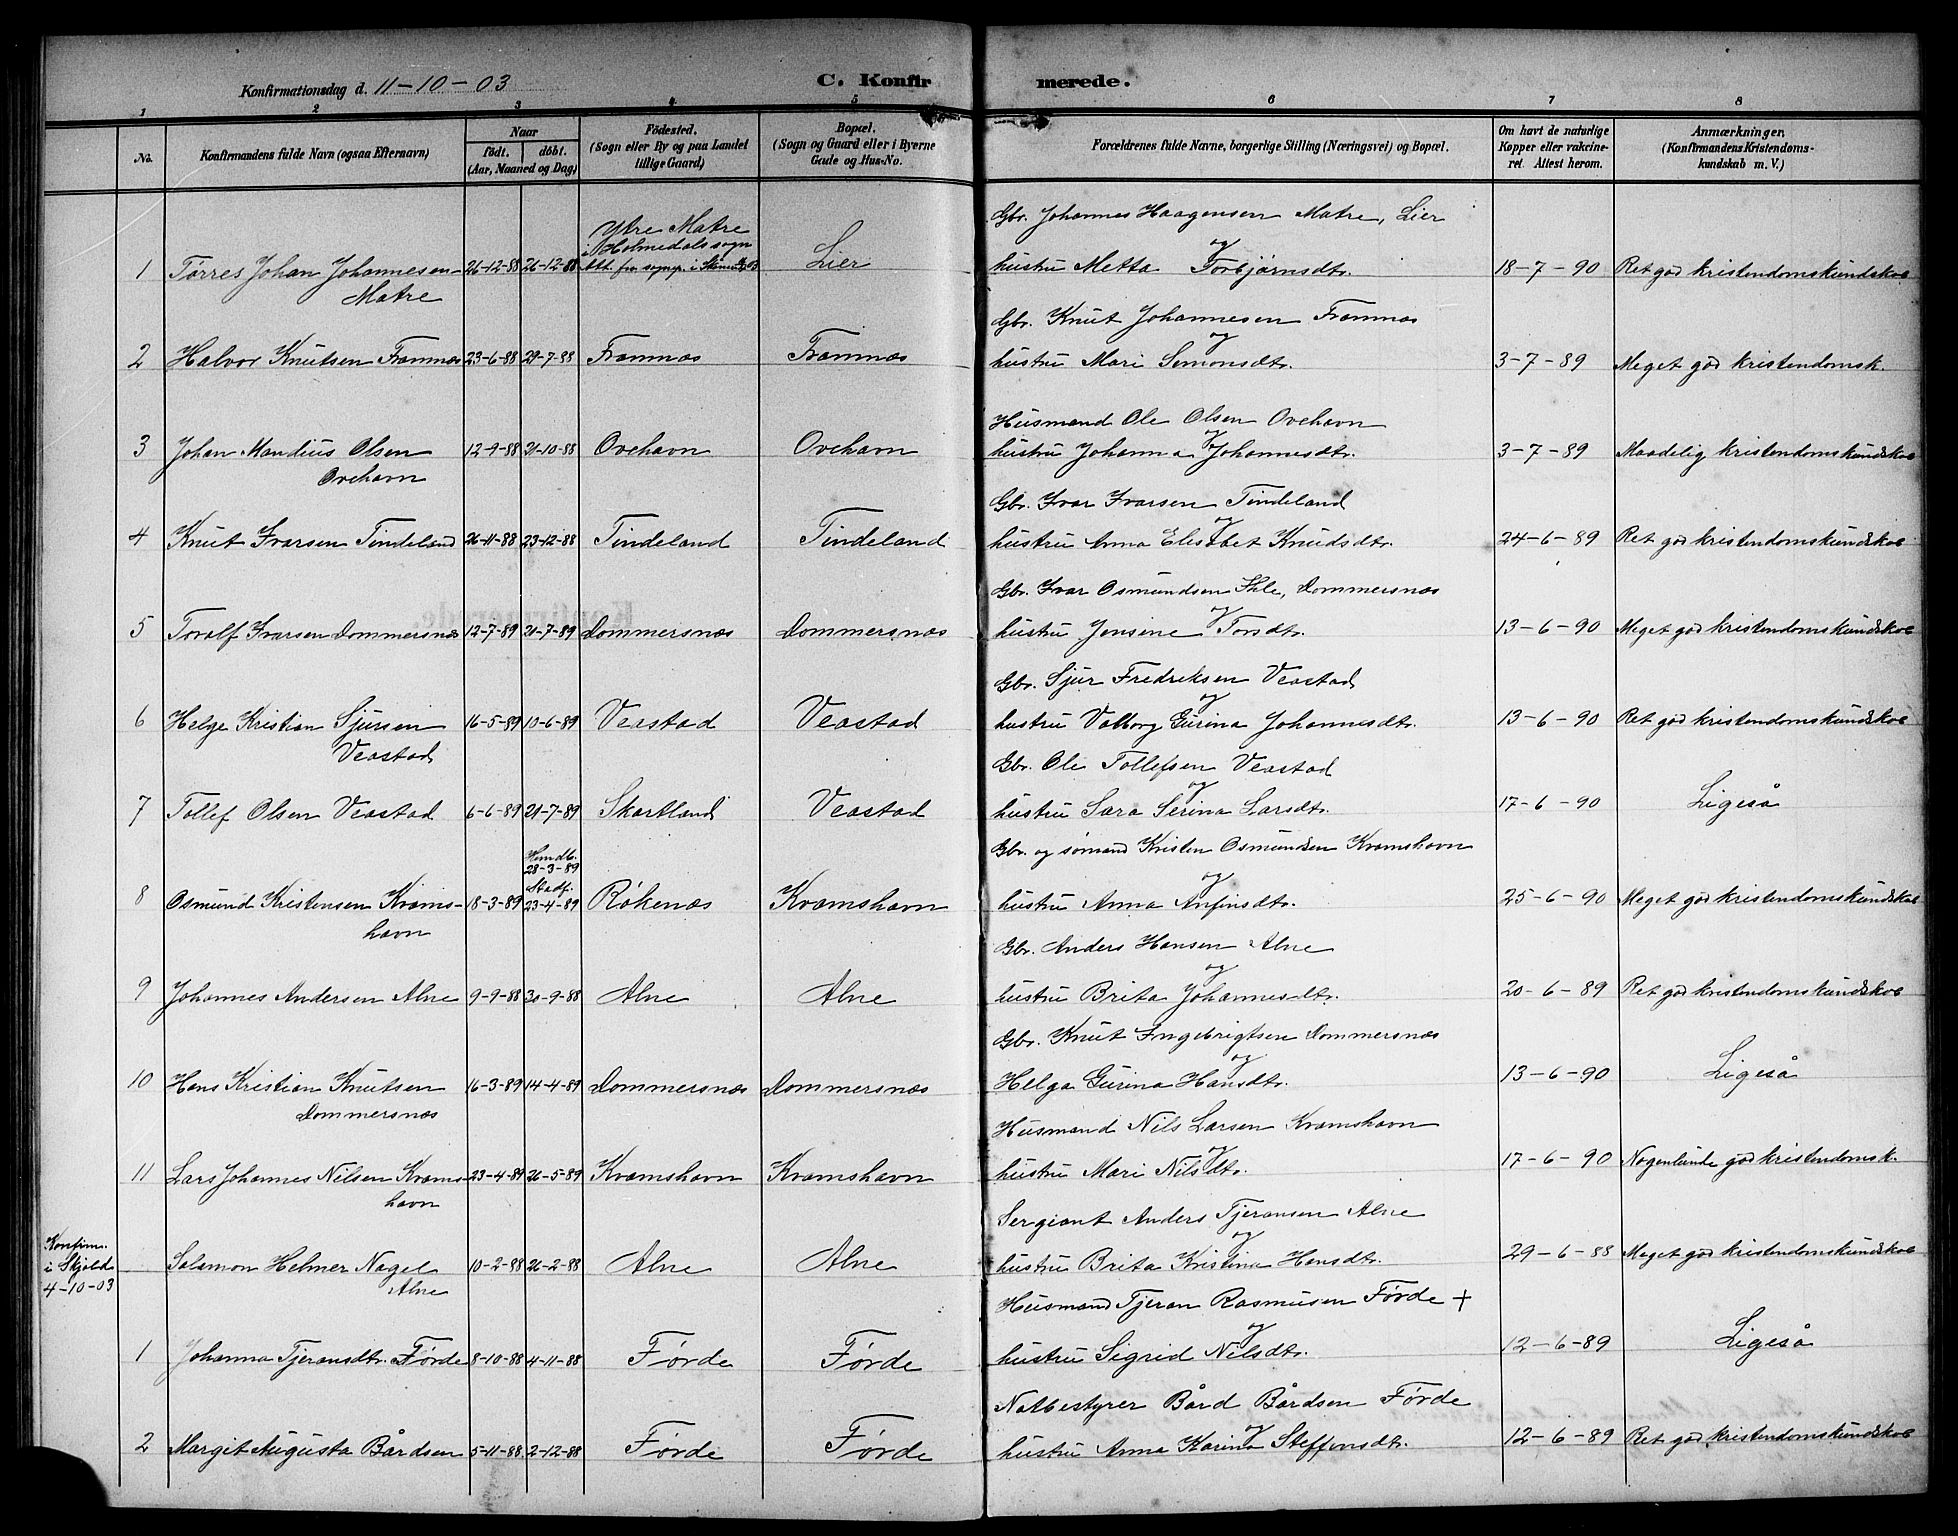 Konfirmationsdag d. 11-10-03
C. Konfirmerede.
1 2 3 4 5 6 7 8
No.
Konfirmandens fulde Navn (ogsaa Efternavn)
Naar
født. døbt.
(Aar, Maaned og Dag)
Födested.
(Sogn eller By og paa Landet
tillige Gaard)
Bopæl.
(Sogn og Gaard eller i Byerne
Gade og Hus-No.
Forældrenes fulde Navne, borgerlige Stilling (Næringsvei) og Bopæl.
Om havt de naturlige
Kopper eller vakcine-
ret. Attest herom.
Anmærkninger.
(Konfirmandens Kristendoms-
kundskab m. V.)
Gbr. Johannes Haagensen Matre, Lier
Ytre Matre
i Holmedals sogn
og
1 Tørres Johan Johannesen 26-12-88 26-12-88 Att. fra sognepr. i Lier hustru Metta Torbjørnsdtr. 18-7-90 Ret god kristendomskundskab
Matre
Gbr. Knut Johannesen Framnæs
og
2 Halvor Knutsen Framnæs 23-6-88 29-7-88 Framnæs Framnæs hustru Mari Simonsdtr. 3-7-89 Meget god kristendomsk.
Husmand Ole Olsen Ovehavn
og
3 Johan Mandius Olsen 12-9-88 21-10-88 Ovehavn Ovehavn hustru Johanna Johannesdtr. 3-7-89 Maadelig kristendomskundskab
Ovehavn
Gbr. Ivar Ivarsen Tindeland
og
4 Knut Ivarsen Tindeland 26-11-88 23-12-88 Tindeland Tindeland hustru Anna Elisabet Knudsdtr. 24-6-89 Ret god kristendomskundskab
Gbr. Ivar Osmundsen Ihle, Dommersnæs
og
5 Toralf Ivarsen Dommersnæs 12-7-89 21-7-89 Dommersnæs Dommersnæs hustru Jensine Torsdtr. 13-6-90 Meget god kristendomskundskab
Gbr. Sjur Fredriksen Veastad
og
6 Helge Kristian Sjursen 16-5-89 10-6-89 Veastad Veastad hustru Valborg Gurina Johannesdtr. 13-6-90 Ret god kristendomskundskab
Veastad
Gbr. Ole Tollefsen Veastad
og
7 Tollef Olsen Veastad 6-6-89 21-7-89 Skartland Veastad hustru Sara Serina Larsdtr. 17-6-90 Ligeså
Gbr. og sømand Kristen Osmundsen Kramshavn
Hemdb.
28-3-89
Stadf.
og
8 Osmund Kristensen Krams- 18-3-89 23-4-89 Røkenæs Kramshavn hustru Anna Anfinsdtr. 25-6-90 Meget god kristendomskundskab
havn
Gbr. Anders Hansen Alne
og
9 Johannes Andersen Alne 9-9-88 30-9-88 Alne Alne hustru Brita Johannesdtr. 20-6-89 Ret god kristendomskundskab
Gbr. Knut Ingebrigtsen Dommersnæs
og
10 Hans Kristian Knutsen 16-3-89 14-4-89 Dommersnæs Dommersnæs Helga Gurina Hansdtr. 13-6-90 Ligeså
Dommersnæs
Husmand Nils Larsen Kramshavn
og
11 Lars Johannes Nilsen Krams- 23-4-89 26-5-89 Kramshavn Kramshavn hustru Mari Nilsdtr. 17-6-90 Nogenlunde god kristendomsk.
havn
Sergiant Anders Tjeransen Alne
og
Konfirm.
i Skjold
4-10-03
Salamon Helmer Nagel 10-2-88 26-2-88 Alne Alne hustru Brita Kristina Hansdtr. 29-6-88 Meget god kristendomskundskab
Alne
Husmand Tjeran Rasmusen Førde +
og
1 Johanna Tjeransdtr. Førde 8-10-88 4-11-88 Førde Førde hustru Sigrid Nilsdtr. 12-6-89 Ligeså
Notbestyrer Bård Bårdsen Førde
og
2 Margit Augusta Bårdsen 5-11-88 2-12-88 Førde Førde hustru Anna Karina Steffensdtr. 12-6-89 Ret god kristendomskundskab